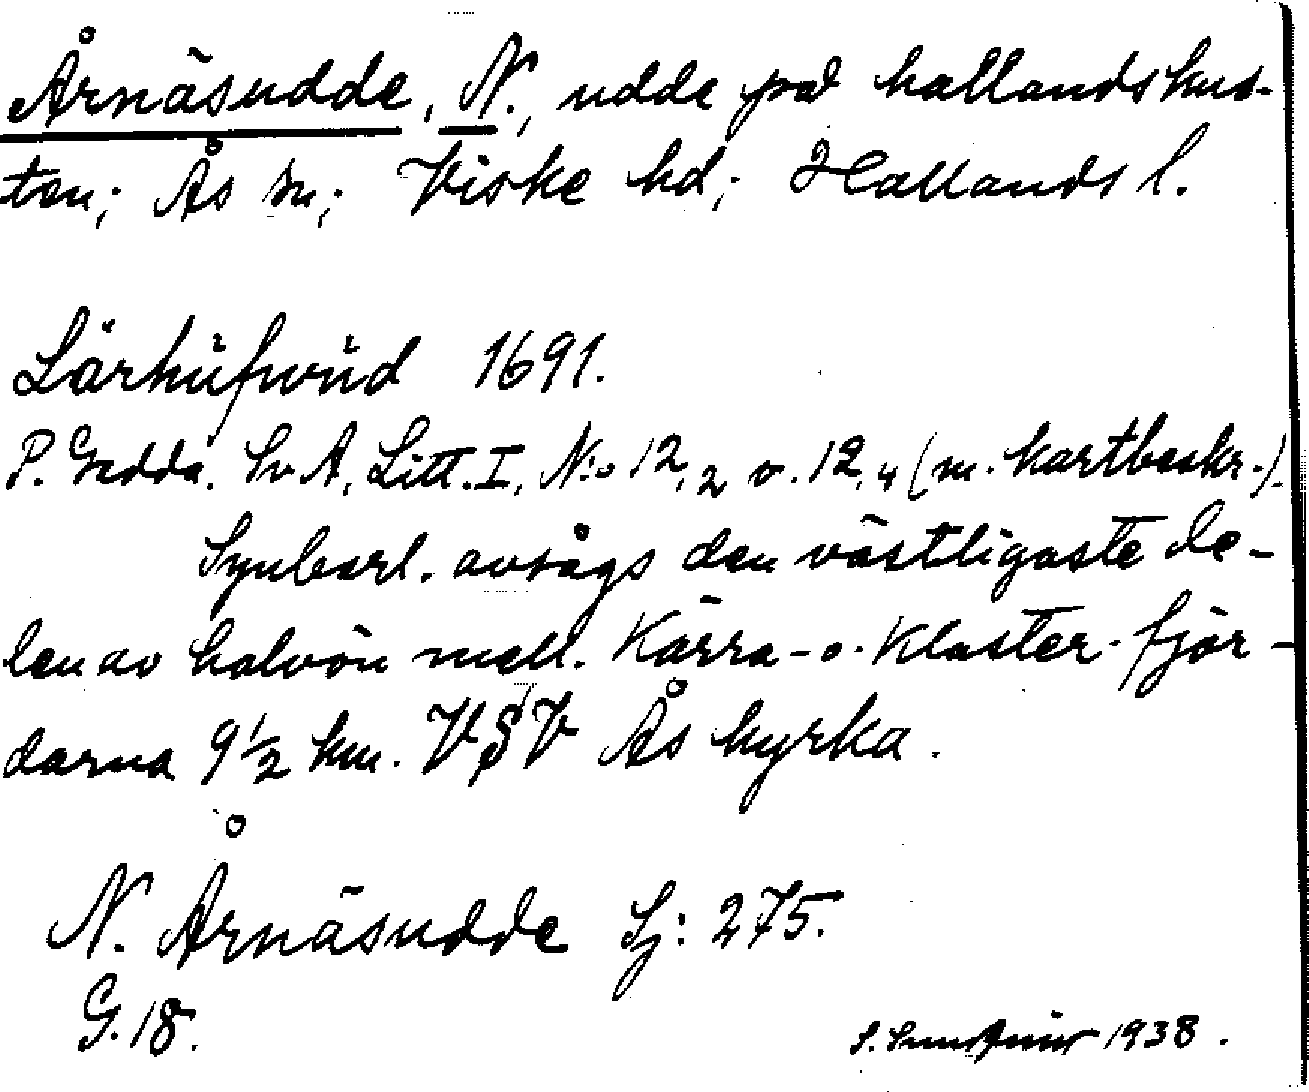 Årnäsudde, N., udde på hallandskus-
ten; Ås sn; Viske hd; Hallands l.
Lärhüfwüd 1691.
P. Gedda. Sv A, Litt. I, N:o 12,2 o. 12,4 (m. kartbeskr.).
Synbarl. avsågs den västligaste de-
len av halvön mell. Kärra- o. Kloster-fjär-
darna 9 1/2 km. VSV Ås kyrka.
N. Årnäsudde Sj: 275.
G. 18.
S. 1938.